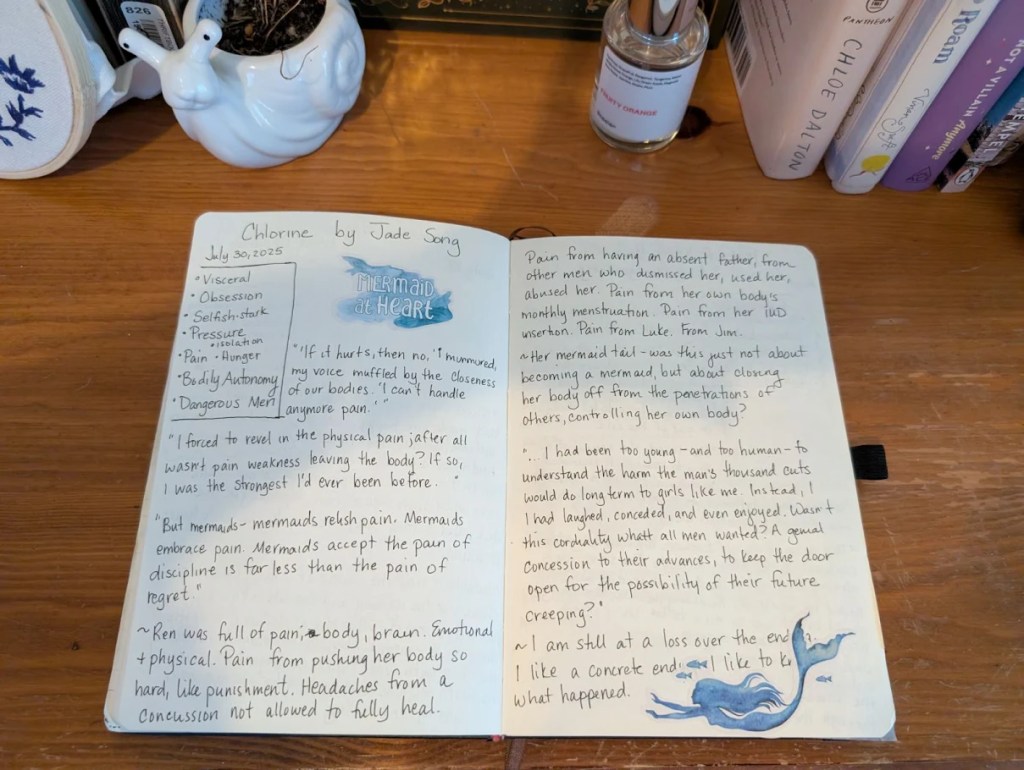 826
FRUITY ORANGE
PANTHEON
CHLOE DALTON
Roam
NOT A VILLAIN Anymore
Chlorine by Jade Song
July 30, 2025
• Visceral
• Obsession
• Selfish-stark
• Pressure
• isolation
• Pain • Hunger
• Bodily Autonomy
• Dangerous Men
MERMAID
at HEART
"'If it hurts, then no,' I murmured,
my voice muffled by the closeness
of our bodies. 'I can't handle
anymore pain.'"
"I forced to revel in the physical pain; after all
wasn't pain weakness leaving the body? If so,
I was the strongest I'd ever been before. "
"But mermaids- mermaids relish pain. Mermaids
embrace pain. Mermaids accept the pain of
discipline is far less than the pain of
regret."
~ Ren was full of pain; body, brain. Emotional
+ physical. Pain from pushing her body so
hard, like punishment. Headaches from a
concussion not allowed to fully heal.
Pain from having an absent father, from
other men who dismissed her, used her,
abused her. Pain from her own body's
monthly menstruation. Pain from her IUD
insertion. Pain from Luke. From Jim.
~ Her mermaid tail - was this just not about
becoming a mermaid, but about closing
her body off from the penetrations of
others, controlling her own body?
"... I had been too young - and too human - to
understand the harm the man's thousand cuts
would do long term to girls like me. Instead, I
I had laughed, conceded, and even enjoyed. Wasn't
this cordiality whatt all men wanted? A genial
concession to their advances, to keep the door
open for the possibility of their future
creeping?"
~ I am still at a loss over the
I like a concrete I like to
what happened.